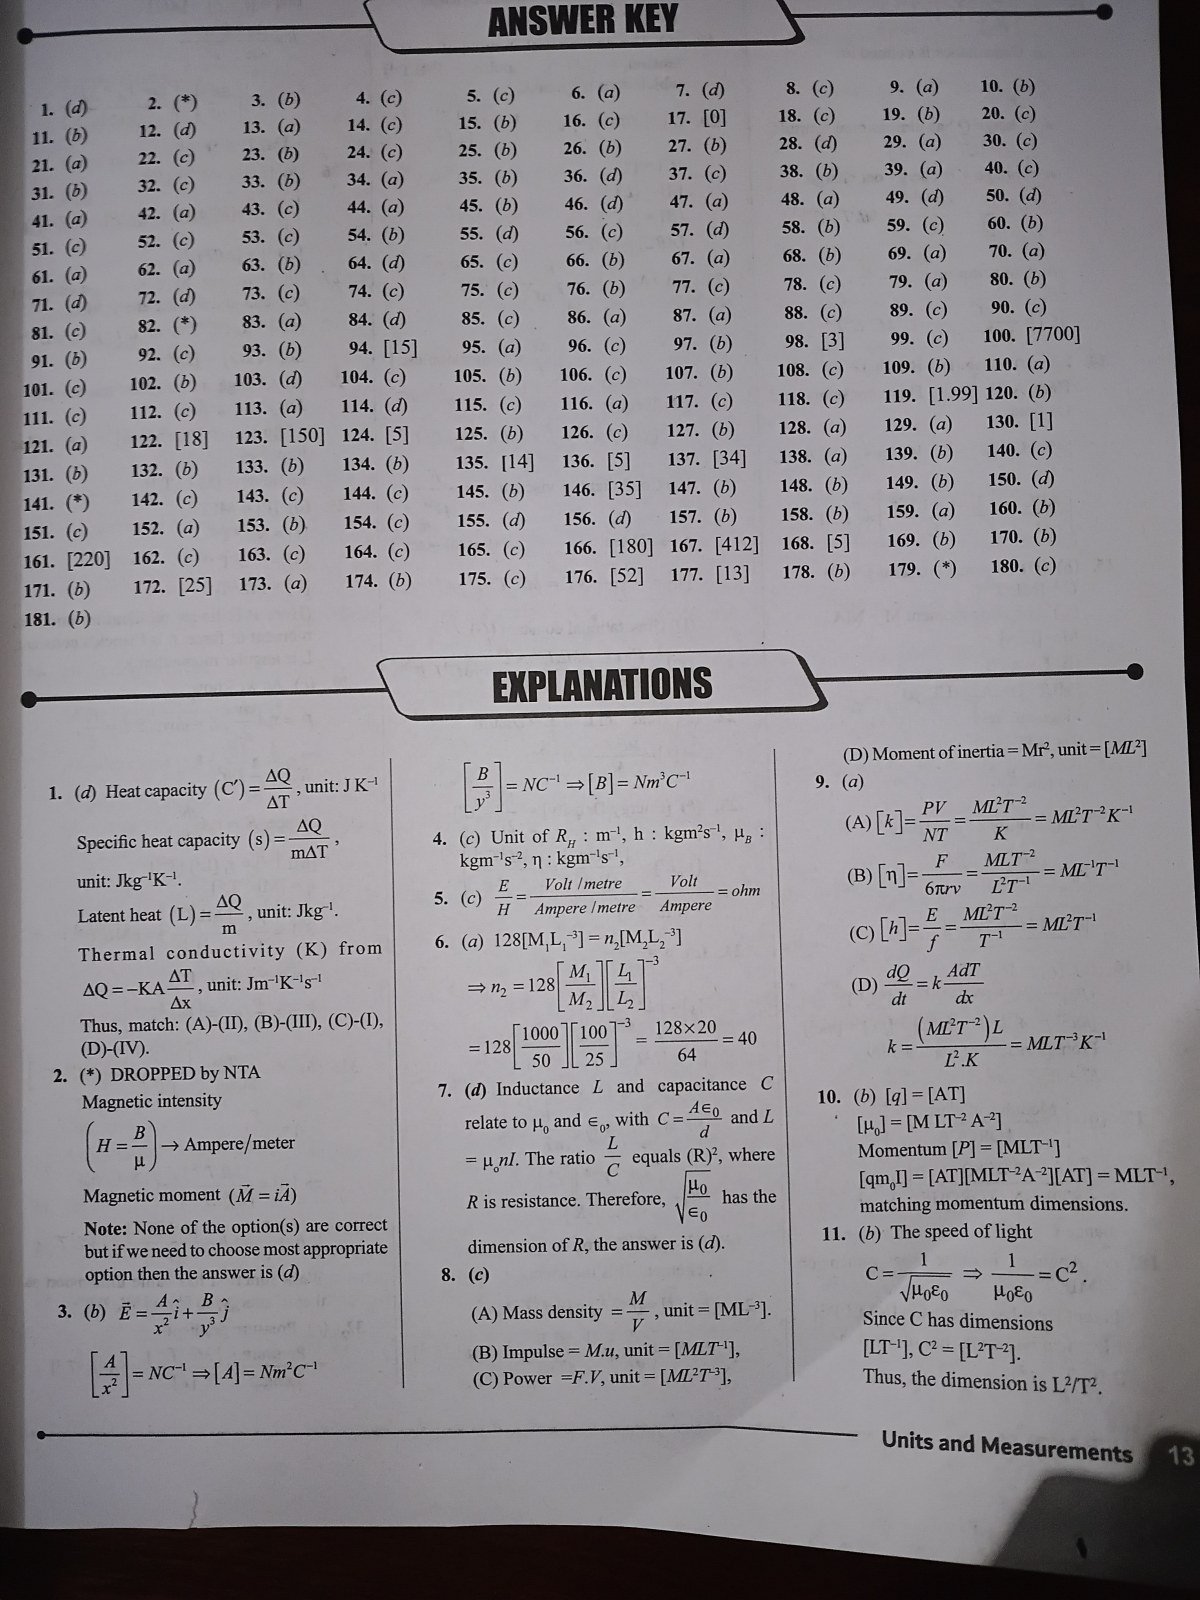 ANSWER KEY
1. (d) 2. (*) 3. (b) 4. (c) 5. (c) 6. (a) 7. (d) 8. (c) 9. (a) 10. (b)
11. (b) 12. (d) 13. (a) 14. (c) 15. (b) 16. (c) 17. [0] 18. (c) 19. (b) 20. (c)
21. (a) 22. (c) 23. (b) 24. (c) 25. (b) 26. (b) 27. (b) 28. (d) 29. (a) 30. (c)
31. (b) 32. (c) 33. (b) 34. (a) 35. (b) 36. (d) 37. (c) 38. (b) 39. (a) 40. (c)
41. (a) 42. (a) 43. (c) 44. (a) 45. (b) 46. (d) 47. (a) 48. (a) 49. (d) 50. (d)
51. (c) 52. (c) 53. (c) 54. (b) 55. (d) 56. (c) 57. (d) 58. (b) 59. (c) 60. (b)
61. (a) 62. (a) 63. (b) 64. (d) 65. (c) 66. (b) 67. (a) 68. (b) 69. (a) 70. (a)
71. (d) 72. (d) 73. (c) 74. (c) 75. (c) 76. (b) 77. (c) 78. (c) 79. (a) 80. (b)
81. (c) 82. (*) 83. (a) 84. (d) 85. (c) 86. (a) 87. (a) 88. (c) 89. (c) 90. (c)
91. (b) 92. (c) 93. (b) 94. [15] 95. (a) 96. (c) 97. (b) 98. [3] 99. (c) 100. [7700]
101. (c) 102. (b) 103. (d) 104. (c) 105. (b) 106. (c) 107. (b) 108. (c) 109. (b) 110. (a)
111. (c) 112. (c) 113. (a) 114. (d) 115. (c) 116. (a) 117. (c) 118. (c) 119. [1.99] 120. (b)
121. (a) 122. [18] 123. [150] 124. [5] 125. (b) 126. (c) 127. (b) 128. (a) 129. (a) 130. [1]
131. (b) 132. (b) 133. (b) 134. (b) 135. [14] 136. [5] 137. [34] 138. (a) 139. (b) 140. (c)
141. (*) 142. (c) 143. (c) 144. (c) 145. (b) 146. [35] 147. (b) 148. (b) 149. (b) 150. (d)
151. (c) 152. (a) 153. (b) 154. (c) 155. (d) 156. (d) 157. (b) 158. (b) 159. (a) 160. (b)
161. [220] 162. (c) 163. (c) 164. (c) 165. (c) 166. [180] 167. [412] 168. [5] 169. (b) 170. (b)
171. (b) 172. [25] 173. (a) 174. (b) 175. (c) 176. [52] 177. [13] 178. (b) 179. (*) 180. (c)
181. (b)
EXPLANATIONS
1. (d) Heat capacity (C′) = ΔQ/ΔT, unit: J K⁻¹
Specific heat capacity (s) = ΔQ/mΔT,
unit: Jkg⁻¹K⁻¹.
Latent heat (L) = ΔQ/m, unit: Jkg⁻¹.
Thermal conductivity (K) from
ΔQ = –KA ΔT/Δx, unit: Jm⁻¹K⁻¹s⁻¹
Thus, match: (A)-(II), (B)-(III), (C)-(I),
(D)-(IV).
2. (*) DROPPED by NTA
Magnetic intensity
(H = B/μ) → Ampere/meter
Magnetic moment (M⃗ = iA⃗)
Note: None of the option(s) are correct
but if we need to choose most appropriate
option then the answer is (d)
3. (b) E⃗ = A/x² î + B/y³ ĵ
[A/x²] = NC⁻¹ ⇒ [A] = Nm²C⁻¹
[B/y³] = NC⁻¹ ⇒ [B] = Nm³C⁻¹
4. (c) Unit of R_H : m⁻¹, h : kgm²s⁻¹, μ_B :
kgm⁻¹s⁻², η : kgm⁻¹s⁻¹,
5. (c) E/H = Volt / metre/Ampere / metre = Volt/Ampere = ohm
6. (a) 128[M₁L₁⁻³] = n₂[M₂L₂⁻³]
⇒ n₂ = 128[M₁/M₂][L₁/L₂]⁻³
= 128[1000/50][100/25]⁻³ = 128×20/64 = 40
7. (d) Inductance L and capacitance C
relate to μ₀ and ∈₀, with C = A∈₀/d and L
= μ₀nI. The ratio L/C equals (R)², where
R is resistance. Therefore, √(μ₀/∈₀) has the
dimension of R, the answer is (d).
8. (c)
(A) Mass density = M/V, unit = [ML⁻³].
(B) Impulse = M.u, unit = [MLT⁻¹],
(C) Power =F.V, unit = [ML²T⁻³],
(D) Moment of inertia = Mr², unit = [ML²]
9. (a)
(A) [k] = PV/NT = ML²T⁻²/K = ML²T⁻²K⁻¹
(B) [η] = F/6πrv = MLT⁻²/L²T⁻¹ = ML⁻¹T⁻¹
(C) [h] = E/f = ML²T⁻²/T⁻¹ = ML²T⁻¹
(D) dQ/dt = k AdT/dx
k = (ML²T⁻²)L/L².K = MLT⁻³K⁻¹
10. (b) [q] = [AT]
[μ₀] = [M LT⁻² A⁻²]
Momentum [P] = [MLT⁻¹]
[qm₀I] = [AT][MLT⁻²A⁻²][AT] = MLT⁻¹,
matching momentum dimensions.
11. (b) The speed of light
C = 1/√μ₀ε₀ ⇒ 1/μ₀ε₀ = C².
Since C has dimensions
[LT⁻¹], C² = [L²T⁻²].
Thus, the dimension is L²/T².
Units and Measurements 13